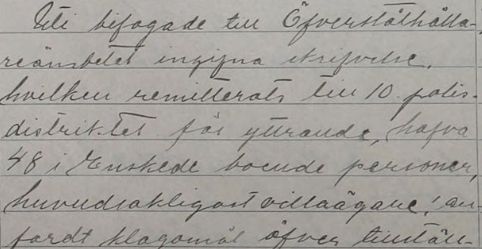 Uti bifogade till Öfverståthålla-
reämbetet ingifna skrifvelse,
hvilken remitterats till 10. polis-
distriktet för yttrande, hafva
48 i Enskede boende personer,
huvudsakligast villaägare, an-
fördt klagomål öfver tillstån-